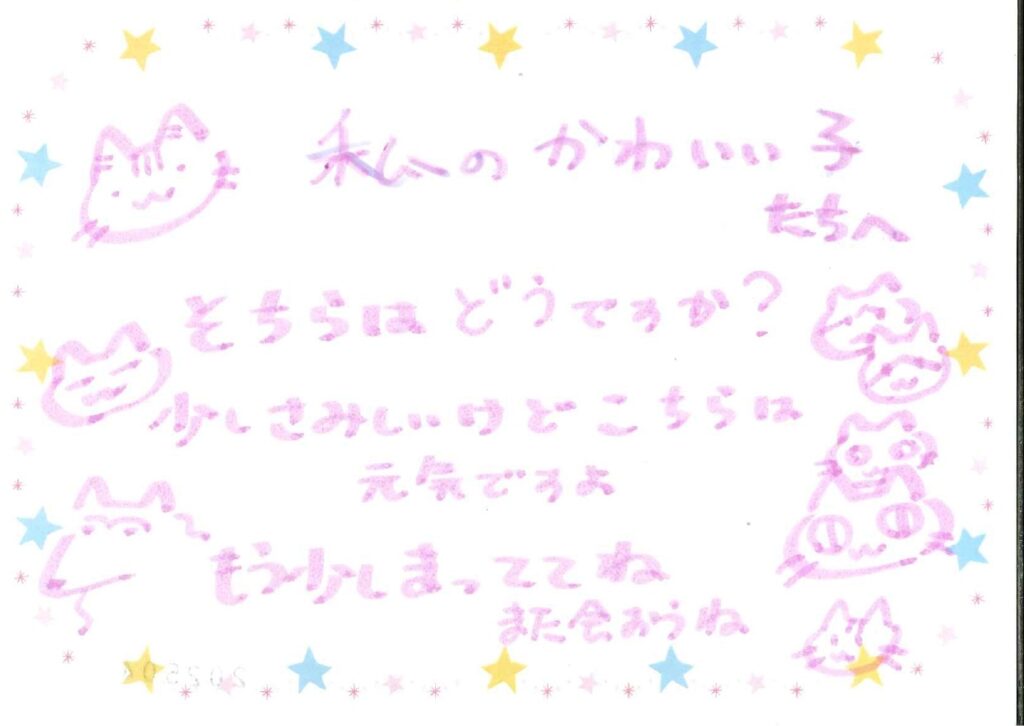 私の かわいい子
たちへ
そちらは どうですか?
少しさみしいけど こちらは
元気ですよ
もう少しまっててね
また会おうね